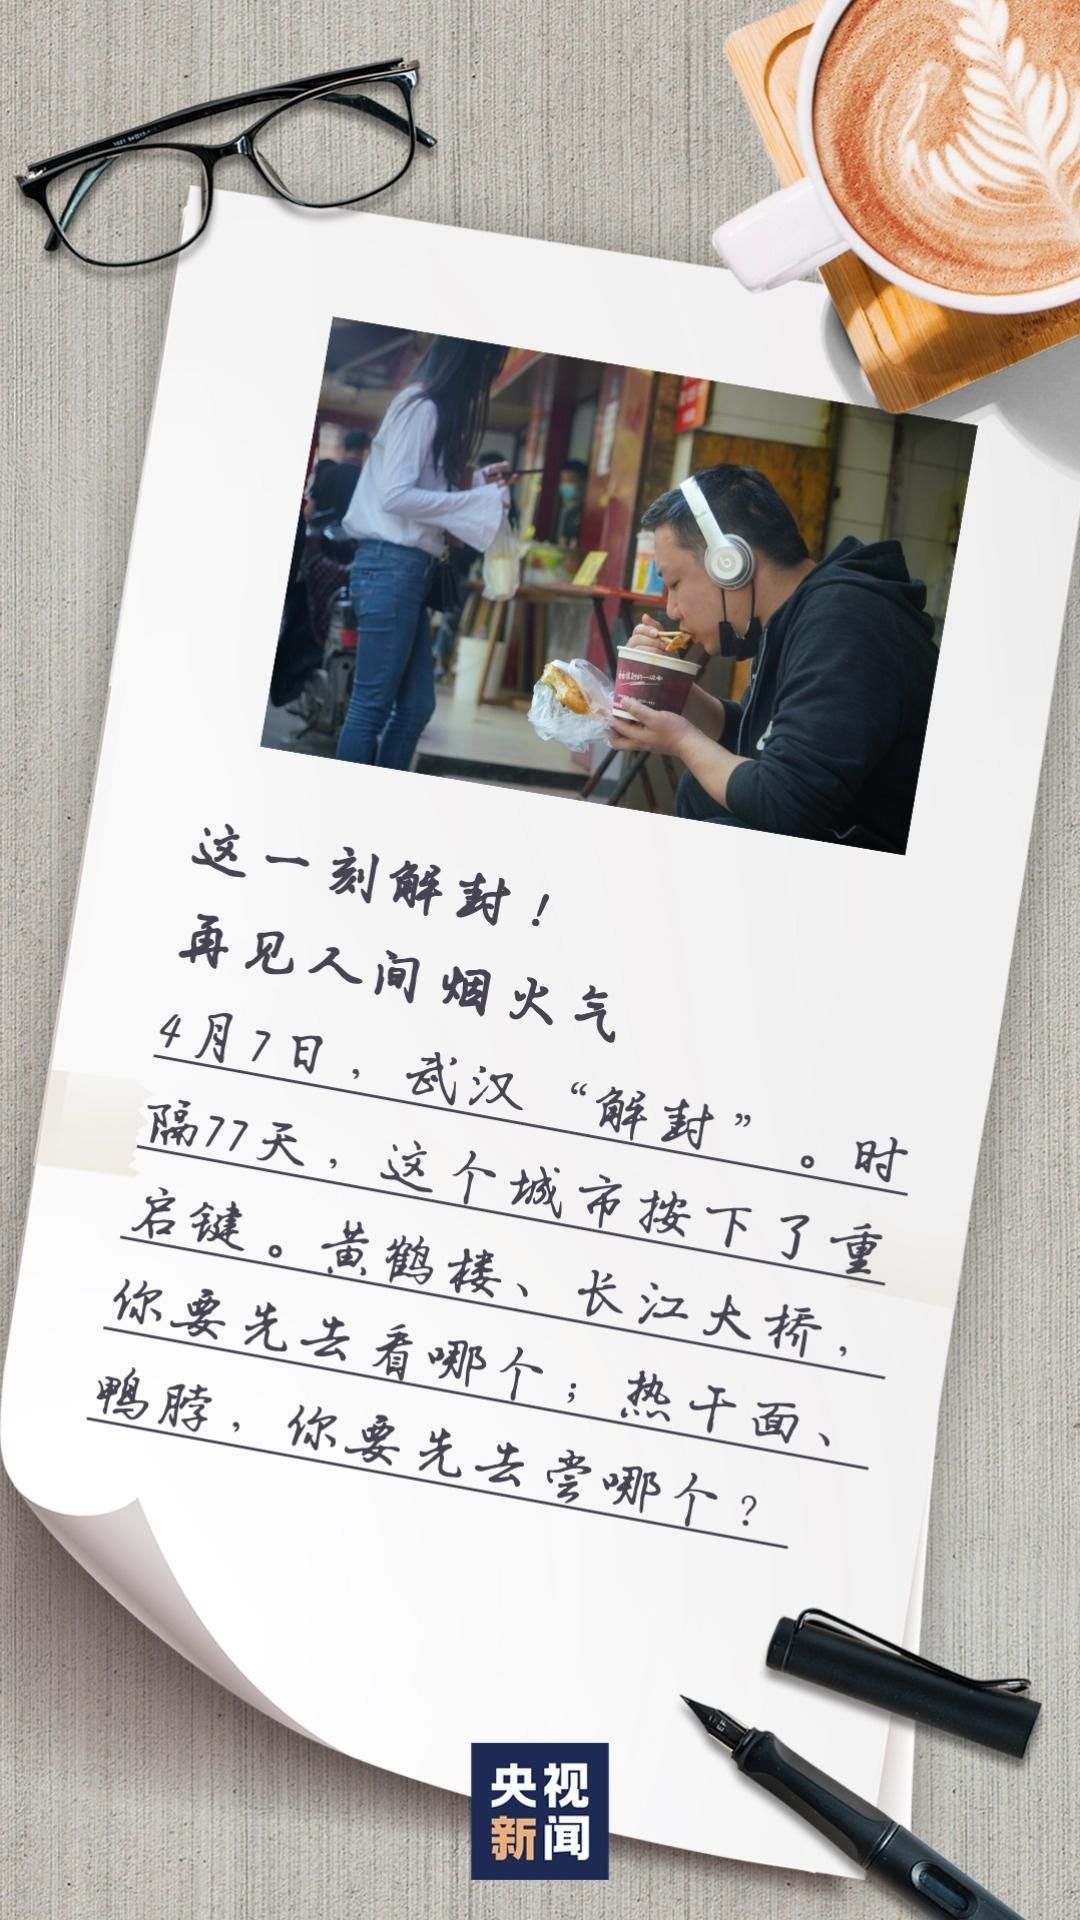 这一刻解封！
再见人间烟火气
4月7日，武汉“解封”。时
隔77天，这个城市按下了重
启键。黄鹤楼、长江大桥，
你要先去看哪个；热干面、
鸭脖，你要先去尝哪个？
央视
新闻